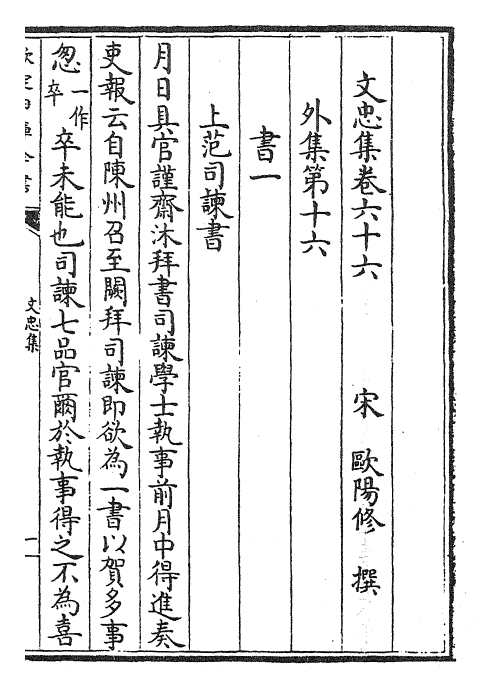 文忠集卷六十六　　　宋　歐陽修　撰
外集第十六
書一
上范司諫書
月日具官謹齋沐拜書司諫學士執事前月中得進奏
吏報云自陳州召至闕拜司諫即欲為一書以賀多事
忽一作卒卒未能也司諫七品官爾於執事得之不為喜
文忠集
一